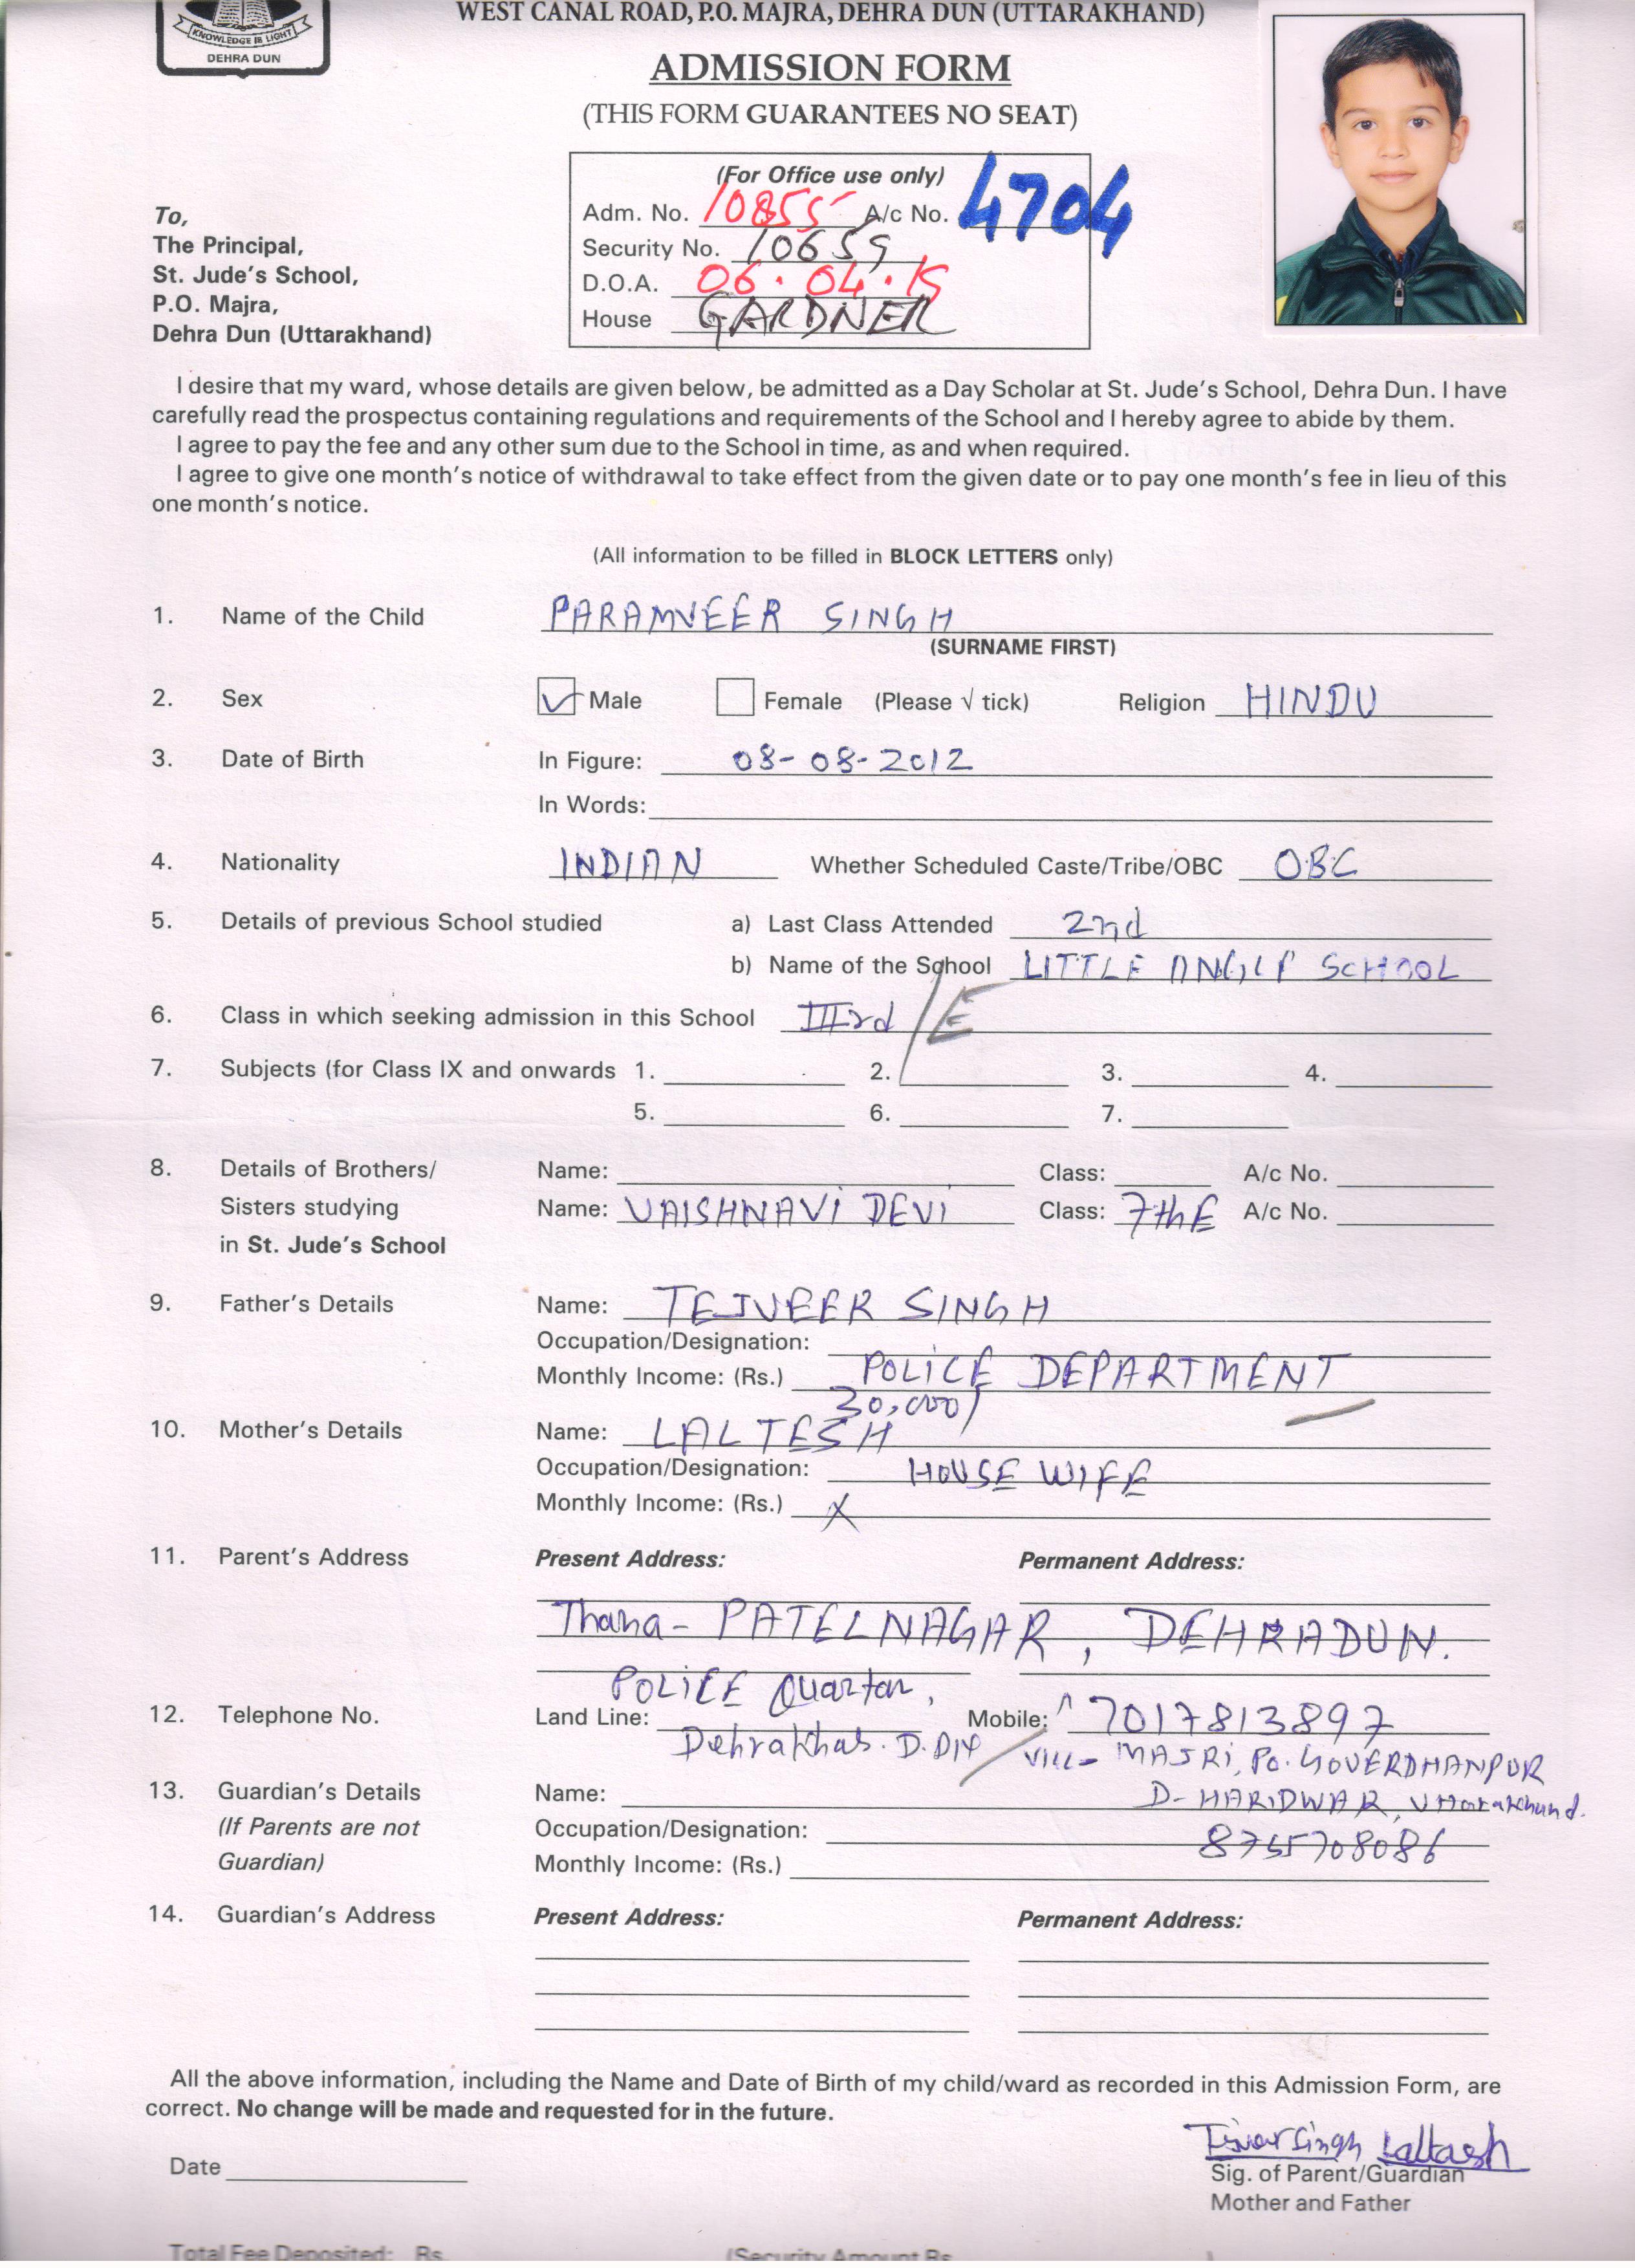 KNOWLEDGE IS LIGHT
DEHRA DUN
WEST CANAL ROAD, P.O. MAJRA, DEHRA DUN (UTTARAKHAND)
ADMISSION FORM
(THIS FORM GUARANTEES NO SEAT)
(For Office use only)
Adm. No. 10855 A/c No. 4704
Security No. 10659
D.O.A. 06.04.19
House GARDNER
To,
The Principal,
St. Jude's School,
P.O. Majra,
Dehra Dun (Uttarakhand)
I desire that my ward, whose details are given below, be admitted as a Day Scholar at St. Jude's School, Dehra Dun. I have
carefully read the prospectus containing regulations and requirements of the School and I hereby agree to abide by them.
I agree to pay the fee and any other sum due to the School in time, as and when required.
I agree to give one month's notice of withdrawal to take effect from the given date or to pay one month's fee in lieu of this
one month's notice.
(All information to be filled in BLOCK LETTERS only)
1. Name of the Child PARAMVEER SINGH
(SURNAME FIRST)
2. Sex Male Female (Please √ tick) Religion HINDU
3. Date of Birth In Figure: 08-08-2012
In Words:
4. Nationality INDIAN Whether Scheduled Caste/Tribe/OBC OBC
5. Details of previous School studied a) Last Class Attended 2nd
b) Name of the School LITTLE SCHOOL
6. Class in which seeking admission in this School IIIrd / E
7. Subjects (for Class IX and onwards 1. 2. 3. 4.
5. 6. 7.
8. Details of Brothers/ Name: Class: A/c No.
Sisters studying Name: VAISHNAVI DEVI Class: 7th E A/c No.
in St. Jude's School
9. Father's Details Name: TEJVEER SINGH
Occupation/Designation:
Monthly Income: (Rs.) POLICE DEPARTMENT
30,000/
10. Mother's Details Name: LALTESH
Occupation/Designation: HOUSE WIFE
Monthly Income: (Rs.) X
11. Parent's Address Present Address: Permanent Address:
Thana- PATELNAGAR, DEHRADUN.
POLICE Quarter,
12. Telephone No. Land Line: Mobile: 7017813897
Dehrakhas. D.DUN VILL- MAJRI, PO. GOVERDHANPUR
13. Guardian's Details Name: D- HARIDWAR, Uttarakhand.
(If Parents are not Occupation/Designation: 8755708086
Guardian) Monthly Income: (Rs.)
14. Guardian's Address Present Address: Permanent Address:
All the above information, including the Name and Date of Birth of my child/ward as recorded in this Admission Form, are
correct. No change will be made and requested for in the future.
Singh Laltesh
Date Sig. of Parent/Guardian
Mother and Father
Total Fee Deposited: Rs. (Security Amount Rs. )